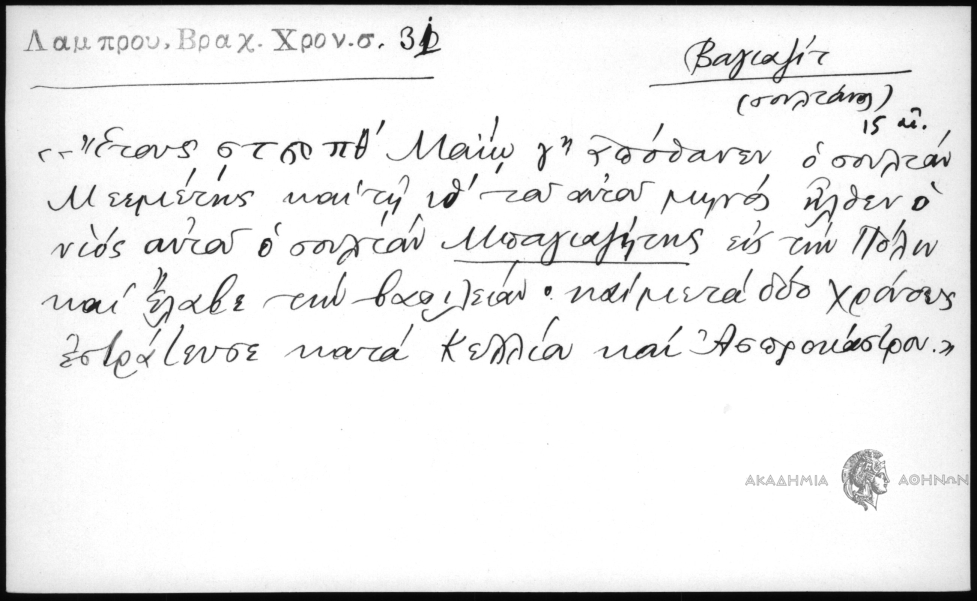 Λαμπρου, Βραχ. Χρον. σ. 31
Βαγιαζίτ
(σουλτάνος)
15 αἰ.
«Ἔτους στϡπθʹ Μαΐῳ γῃ ἀπόθανεν ὁ σουλτάν
Μεεμέτης καὶ τῇ ιθʹ τοῦ αὐτοῦ μηνός ἦλθεν ὁ
υἱός αὐτοῦ ὁ σουλτάν Μπαγιαζήτης εἰς τήν Πόλιν
καί ἔλαβε τήν βασιλείαν· καί μετά δύο χρόνους
ἐστράτευσε κατά Κελλίου καί Ἀσπροκάστρου.»
ΑΚΑΔΗΜΙΑ ΑΘΗΝΩΝ